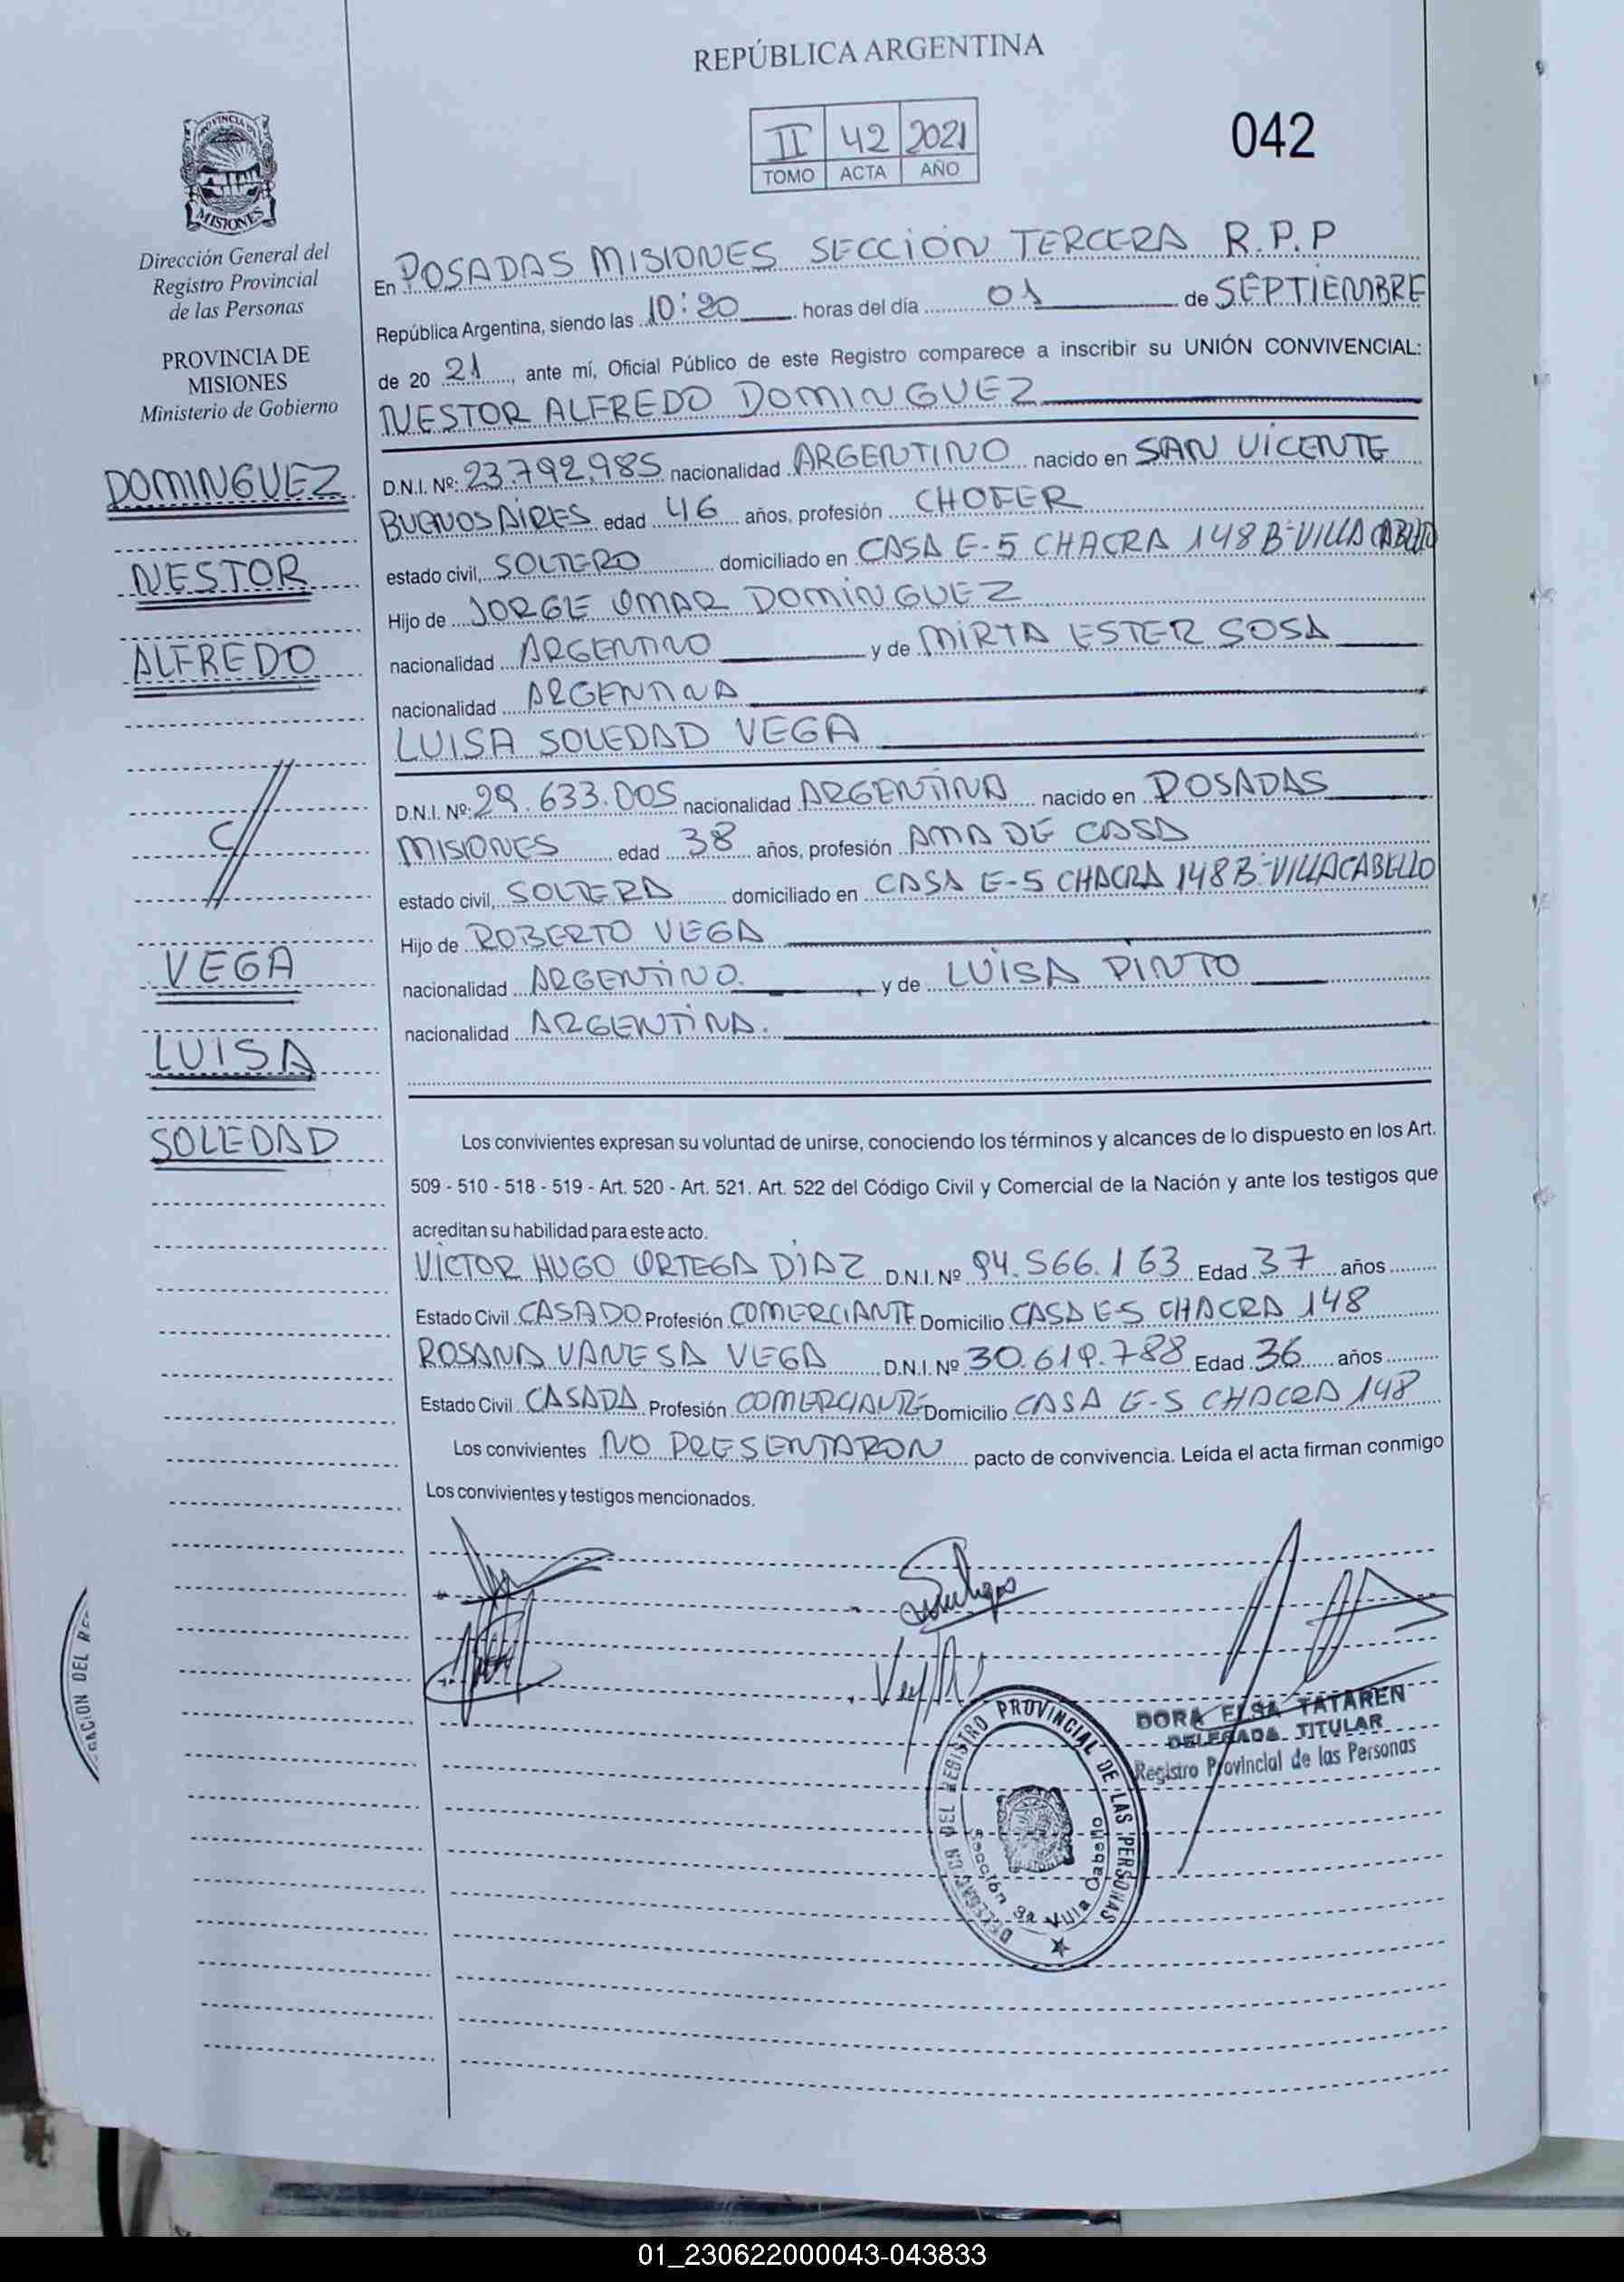 REPÚBLICA ARGENTINA
II 42 2021
TOMO ACTA AÑO
042
PROVINCIA DE
MISIONES
Dirección General del
Registro Provincial
de las Personas
PROVINCIA DE
MISIONES
Ministerio de Gobierno
DOMINGUEZ
NESTOR
ALFREDO
C//
VEGA
LUISA
SOLEDAD
En POSADAS MISIONES SECCIÓN TERCERA R.P.P
República Argentina, siendo las 10:20 horas del día 01 de SEPTIEMBRE
de 20 21, ante mí, Oficial Público de este Registro comparece a inscribir su UNIÓN CONVIVENCIAL:
NESTOR ALFREDO DOMINGUEZ
D.N.I. Nº: 23.792.985 nacionalidad ARGENTINO nacido en SAN VICENTE
BUENOS AIRES edad 46 años, profesión CHOFER
estado civil, SOLTERO domiciliado en CASA E-5 CHACRA 148 B-VILLA CABELLO
Hijo de JORGE OMAR DOMINGUEZ
nacionalidad ARGENTINO y de MIRTA ESTER SOSA
nacionalidad ARGENTINA
LUISA SOLEDAD VEGA
D.N.I. Nº: 29.633.005 nacionalidad ARGENTINA nacido en POSADAS
MISIONES edad 38 años, profesión AMA DE CASA
estado civil, SOLTERA domiciliado en CASA E-5 CHACRA 148 B-VILLA CABELLO
Hijo de ROBERTO VEGA
nacionalidad ARGENTINO. y de LUISA PINTO
nacionalidad ARGENTINA.
Los convivientes expresan su voluntad de unirse, conociendo los términos y alcances de lo dispuesto en los Art.
509 - 510 - 518 - 519 - Art. 520 - Art. 521. Art. 522 del Código Civil y Comercial de la Nación y ante los testigos que
acreditan su habilidad para este acto.
VÍCTOR HUGO ORTEGA DÍAZ D.N.I. Nº 94.566.163 Edad 37 años
Estado Civil CASADO Profesión COMERCIANTE Domicilio CASA E5 CHACRA 148
ROSANA VANESA VEGA D.N.I. Nº 30.619.788 Edad 36 años
Estado Civil CASADA Profesión COMERCIANTE Domicilio CASA E-5 CHACRA 148
Los convivientes NO PRESENTARON pacto de convivencia. Leída el acta firman conmigo
Los convivientes y testigos mencionados.
DORA ELSA TATAREN
DELEGADA TITULAR
Registro Provincial de las Personas
DEL REGISTRO PROVINCIAL DE LAS PERSONAS
Sección 3a Villa Cabello
01_230622000043-043833